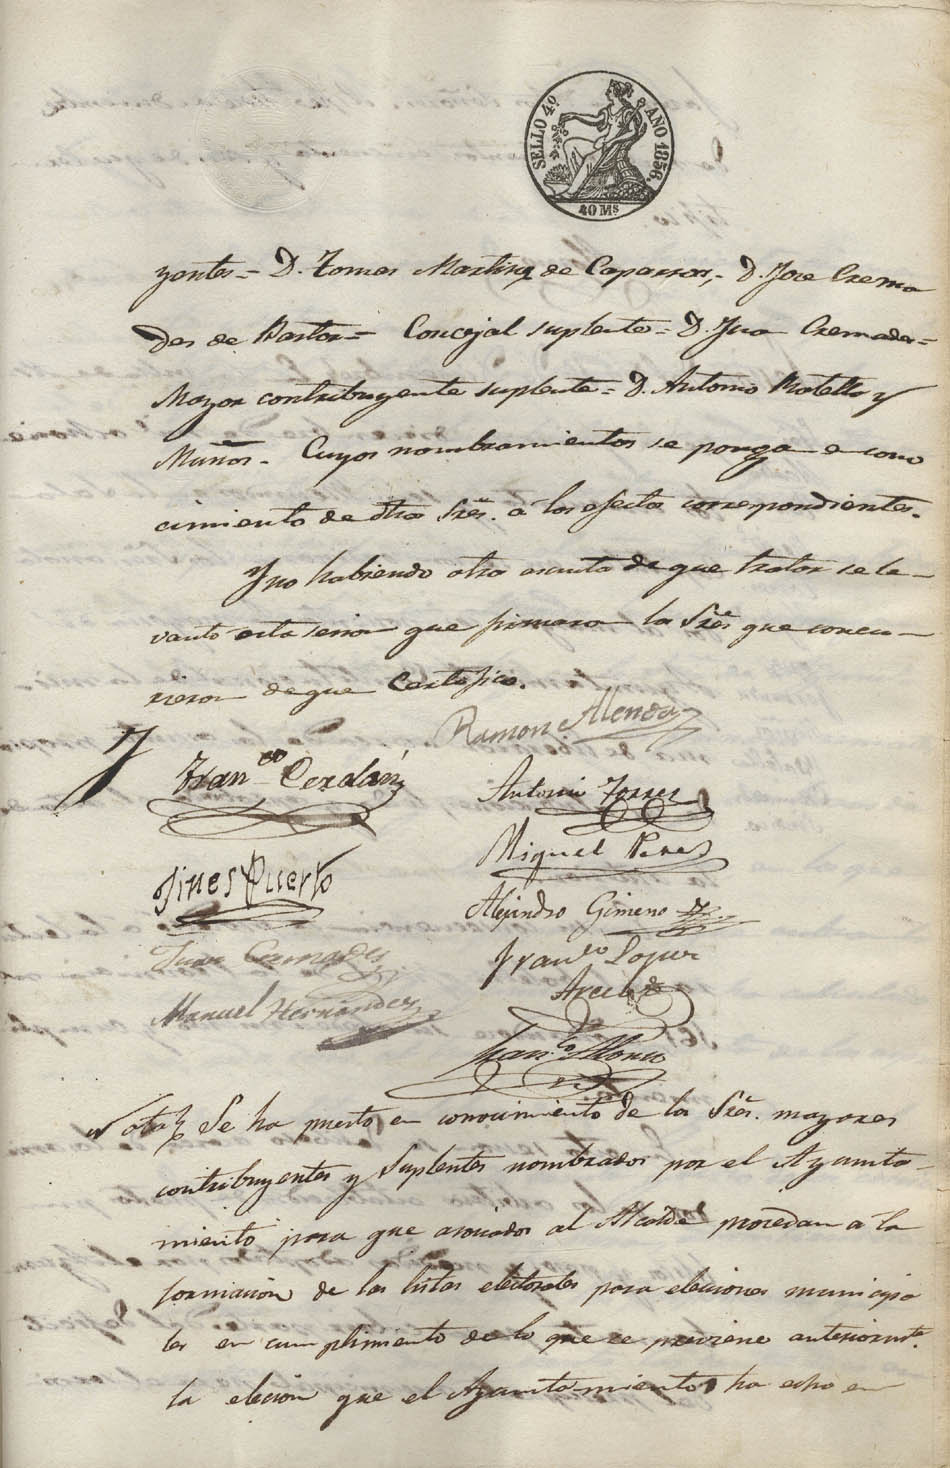 SELLO 4º AÑO 1856.
40 Ms
yentes = D. Tomas Martinz de Caparros, = D. Jose Crema
des de Pastor = Concejal suplente = D. Jua Cremades =
Mayor contribuyente suplente = D. Antonio Motello y
Muños. Cuyos nombramientos se ponga en cono
cimiento de dhos Sres. a los efectos correspondientes.
Y no habiendo otro asunto de que tratar se le-
vanto esta sesion que firmaron los Sres que concu-
rieron de que Certifico.
Ramon Alenda
Franco Cerdán
Antonio Torres
Miguel Peres
Jines Puerto
Alejandro Gimeno
Juan Cremades
Franco Lopez
Manuel Hernandez
Juan
Nota Se ha puesto en conocimiento de los Sres. mayores
contribuyentes y Suplentes nombrados por el Ayunta-
miento para que asociados al Alcalde procedan a la
formacion de las listas electorales para elecciones municipa
les en cumplimiento de lo que se previene anteriormte.
la elecion que el Ayuntamiento ha echo en